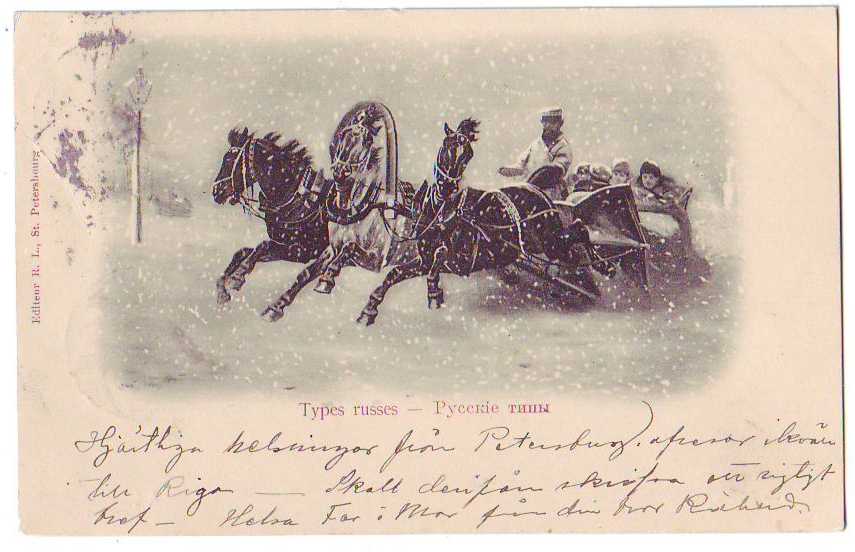 Editeur R. L., St. Petersbourg
Types russes — Русскіе типы
Hjärtliga helsningar från Petersburg. afresar ikväll
till Riga — Skall derifrån skrifva ett rigtigt
bref — Helsa Far o Mor från din bror Richard.